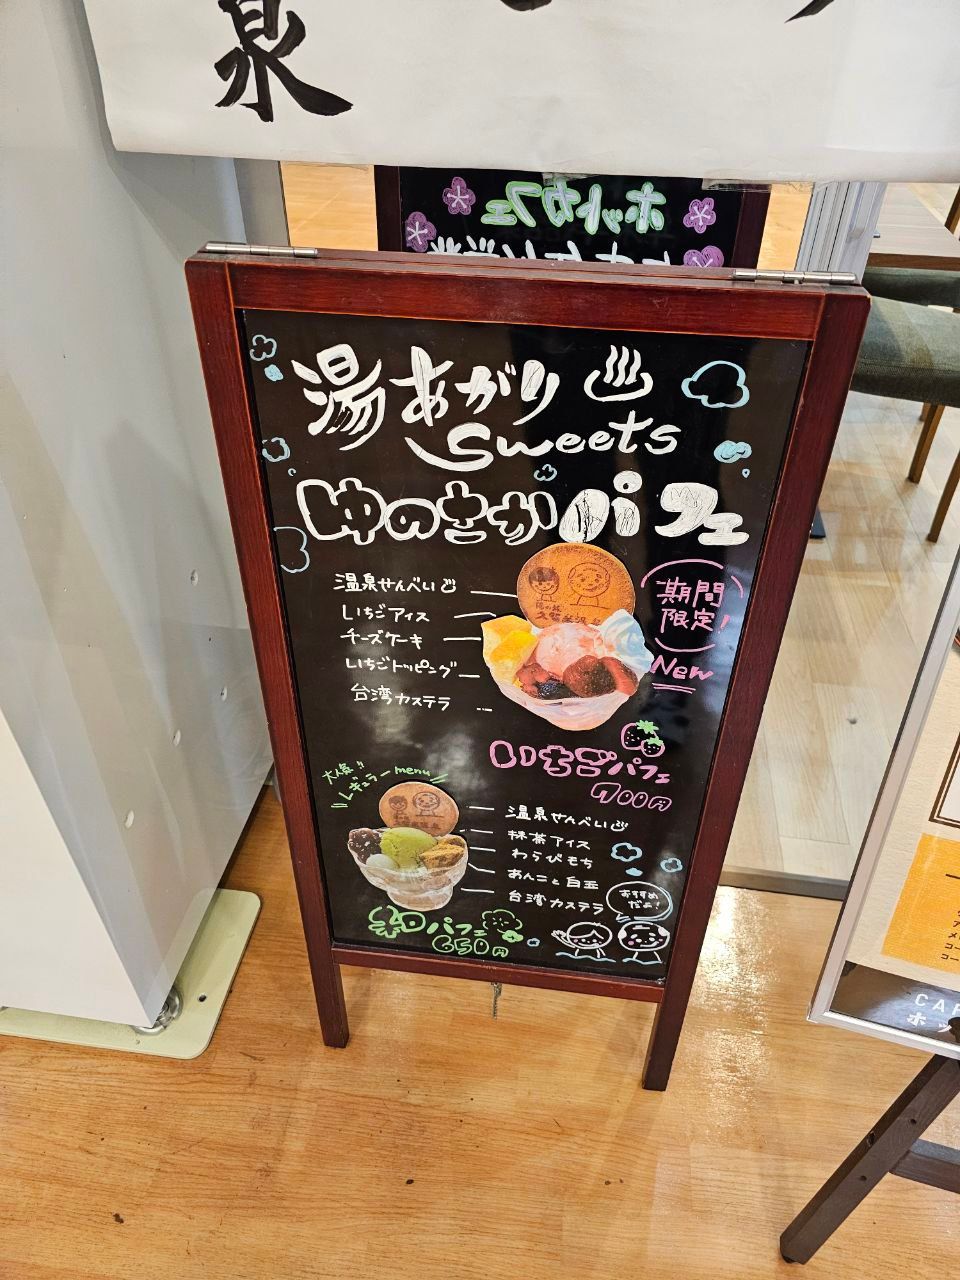 泉
ホットカフェ
湯あがり♨
Sweets
ゆのさかパフェ
温泉せんべい♨
いちごアイス
チーズケーキ
いちごトッピング
台湾カステラ
期間
限定!
New
いちごパフェ
700円
大人気!!
レギュラーmenu
温泉せんべい♨
抹茶アイス
わらびもち
あんこと白玉
台湾カステラ
おすすめ
だよ!
和パフェ
650円